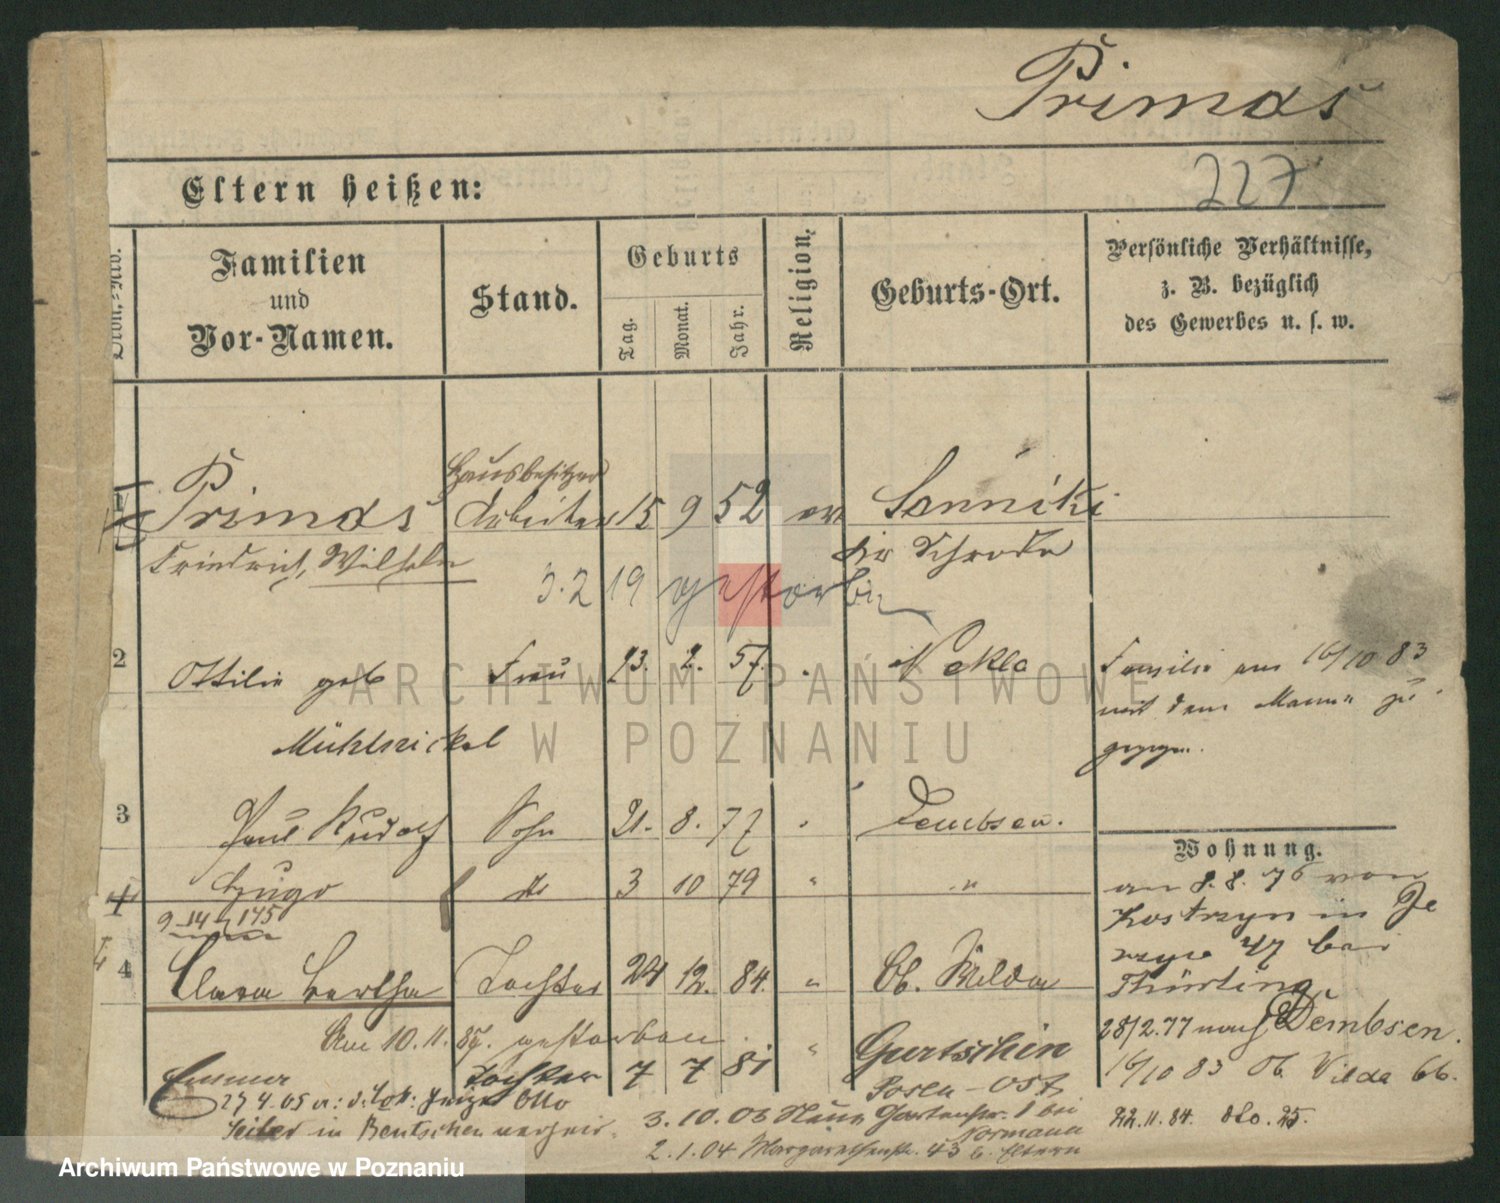 Primas
227
Eltern heißen:
Familien
und
Vor-Namen.
Stand.
Geburts
Tag.
Monat.
Jahr.
Religion.
Geburts-Ort.
Persönliche Verhältnisse,
z. B. bezüglich
des Gewerbes u. s. w.
1
Hausbesitzer
Primas Arbeiter 15 9 52 ev Sanniki
Friedrich, Wilhelm Kr Schroda
3.2 19 gestorben
2 Ottilie geb Frau 2. 57. Nekla
Mühlnickel
Familie am 16/10 83
mit dem Manne zu
gezogen.
3 Paul Rudolf Sohn 21. 8. 77 Dembsen.
Hugo do 3 10 79 " "
9 - 14 - 175
4 Clara Bertha Tochter 24 12. 84. " Ob. Wilda
Am 10. 11. 87. gestorben
Emma Tochter 7 7 81 " Gurtschin
Posen - Ost
27 4. 05 Otto
Seiler in Bentschen
3. 10. 03 Neue Gartenstr. 1 bei
Normann
2. 1. 04 Margarethenstr. 43 b. Eltern
Wohnung.
am 8. 8. 76 von
Kostrzyn in Je
rzyce 47 bei
Thürling
28/2. 77 nach Dembsen.
16/10 83 Ob. Vilda 66.
22. 11. 84. dto. 25.
ARCHIWUM PAŃSTWOWE
W POZNANIU
Archiwum Państwowe w Poznaniu